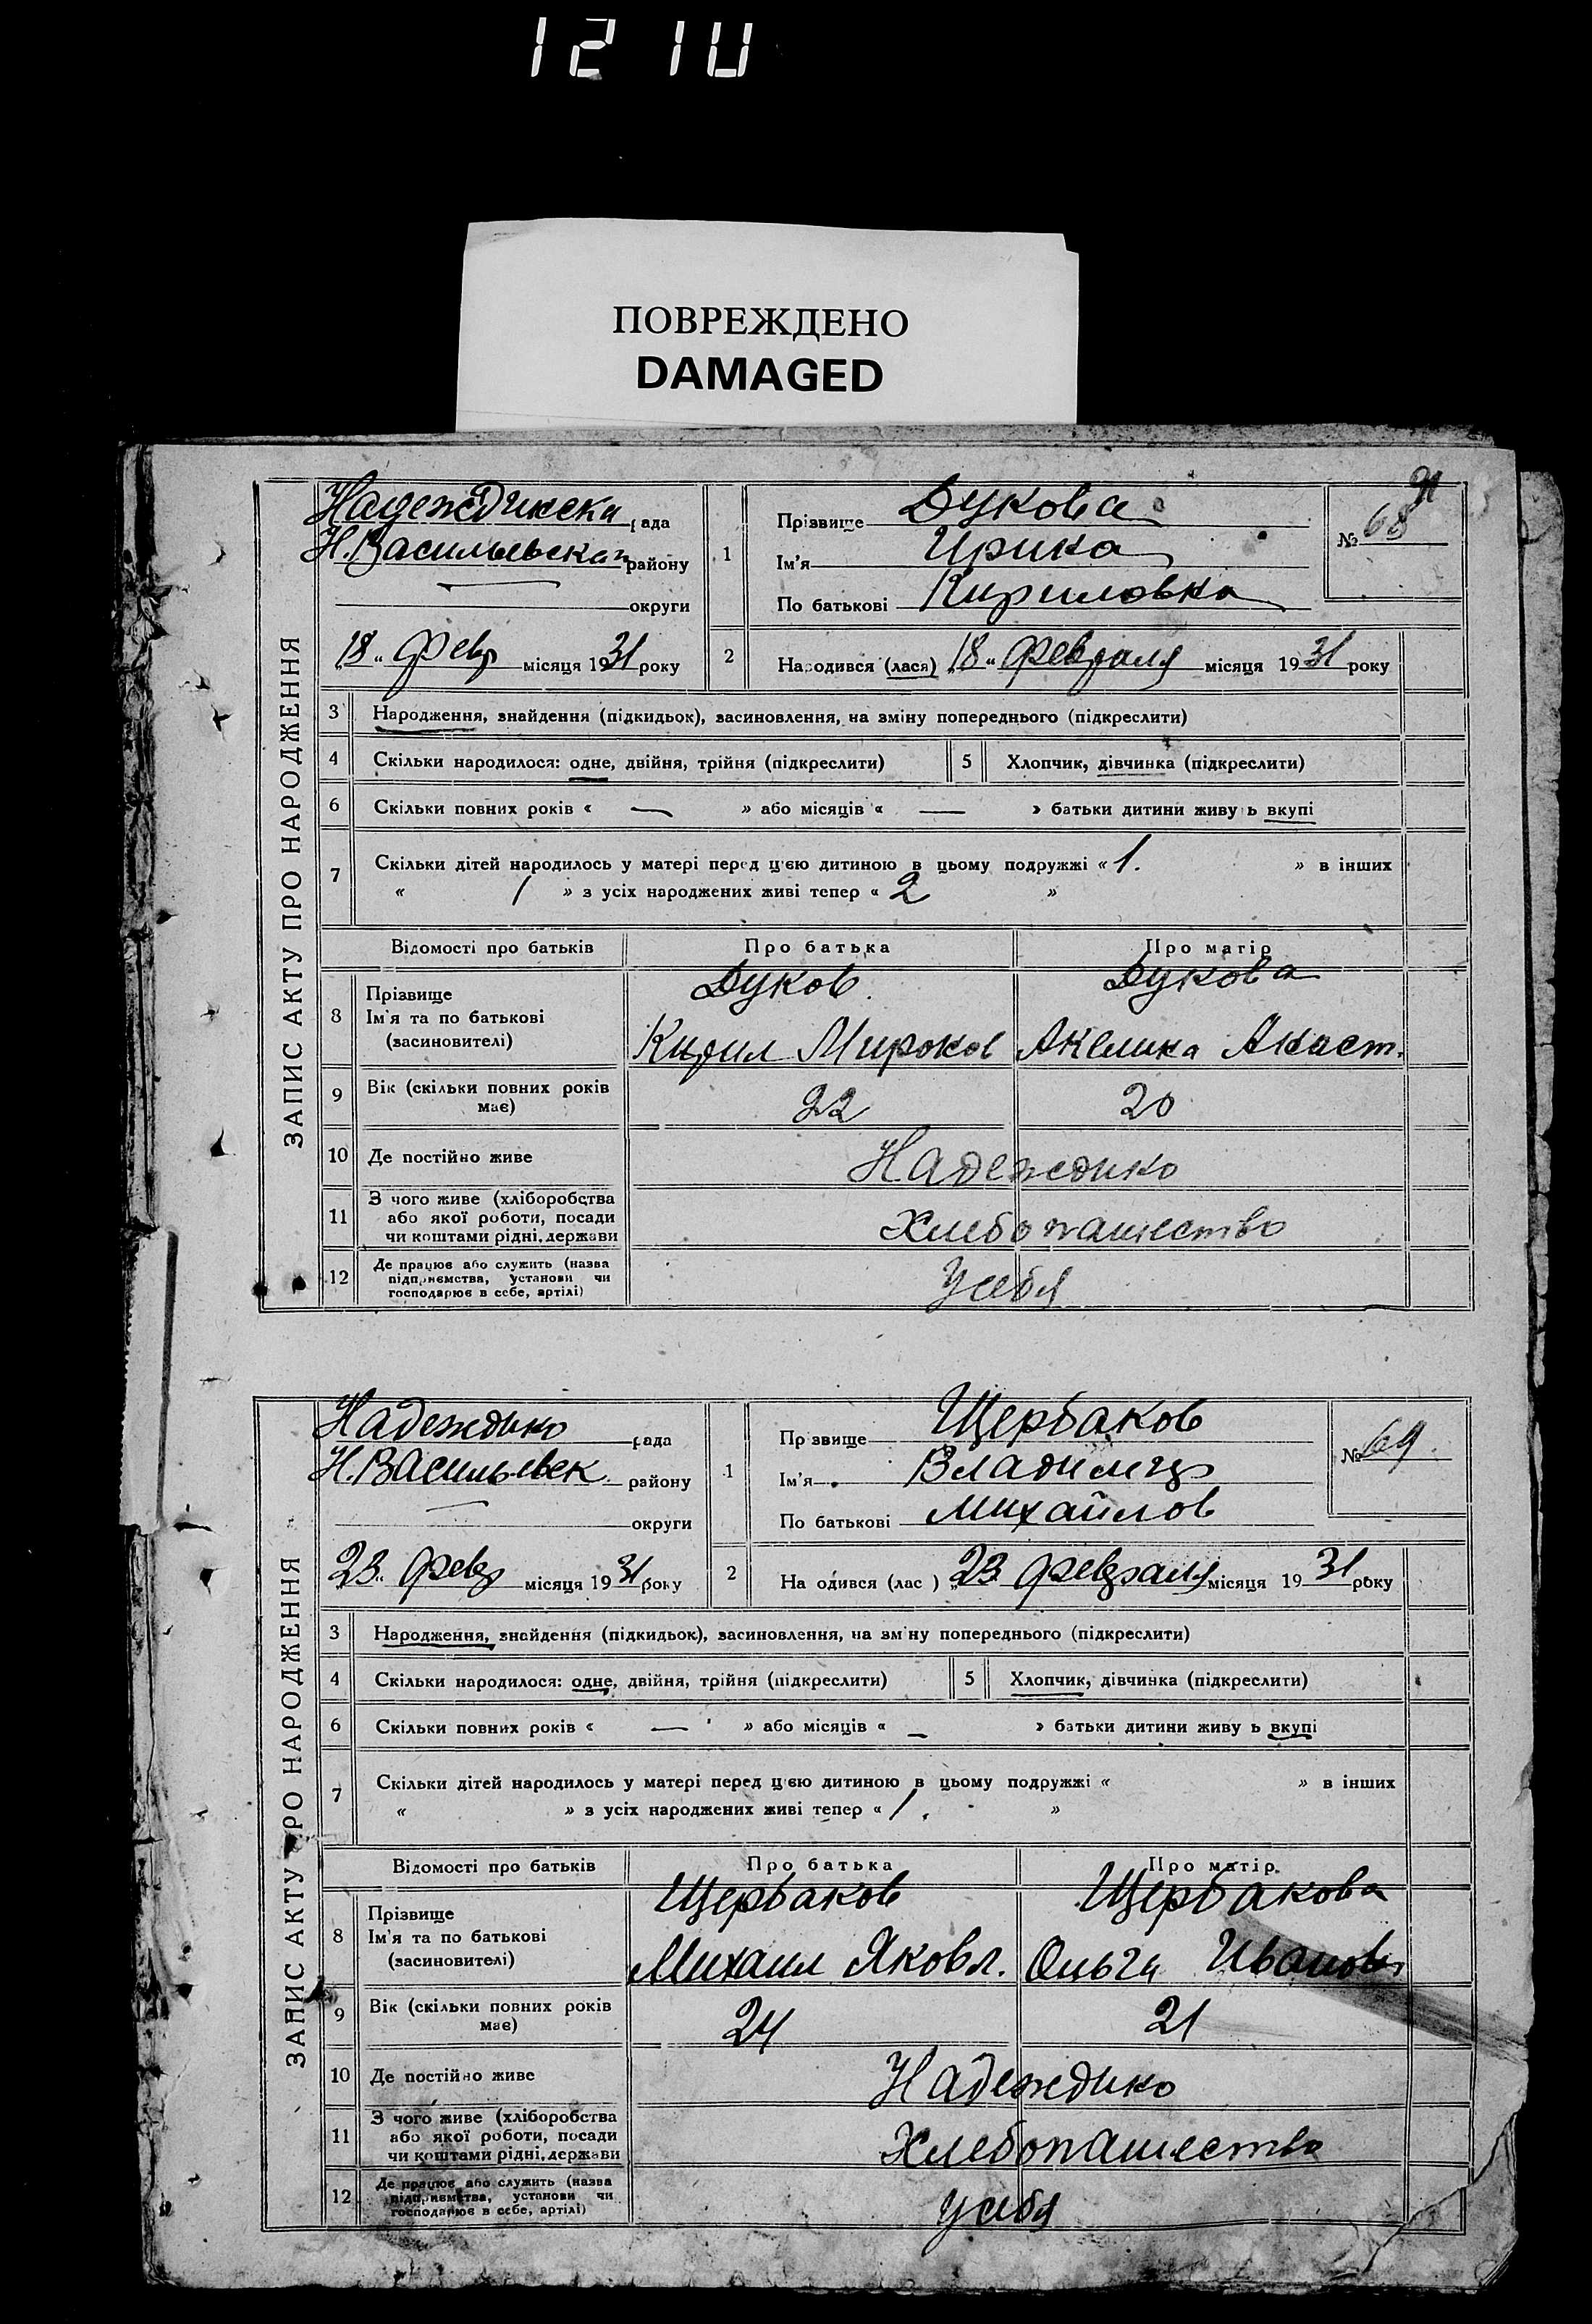 ПОВРЕЖДЕНО
DAMAGED
91
ЗАПИС АКТУ ПРО НАРОДЖЕННЯ
Надеждинска рада
Н. Васильевская району
округи
18 Февр місяця 1931 року
1
Прізвище Дукова
Ім'я Ирина
По батькові Кириловна
№ 68
2
Народився (лася) 18 Февраля місяця 1931 року
3 Народження, знайдення (підкидьок), засиновлення, на зміну попереднього (підкреслити)
4 Скільки народилося: одне, двійня, трійня (підкреслити) 5 Хлопчик, дівчинка (підкреслити)
6 Скільки повних років « — » або місяців « — » батьки дитини живуть вкупі
7 Скільки дітей народилось у матері перед цією дитиною в цьому подружжі « 1. » в інших
« / » з усіх народжених живі тепер « 2 »
Відомості про батьків Про батька Про матір
8 Прізвище Дуков Дукова
Ім'я та по батькові
(засновителі) Кирил Миронов Анелика Анаст.
9 Вік (скільки повних років має) 22 20
10 Де постійно живе Надеждино
11 З чого живе (хліборобства
або якої роботи, посади
чи коштами рідні, держави Хлебопашество
12 Де працює або служить (назва
підприємства, установи чи
господарює в себе, артілі) У себя
ЗАПИС АКТУ ПРО НАРОДЖЕННЯ
Надеждино рада
Н. Васильевск району
округи
23 Февр місяця 1931 року
1
Прізвище Щербаков
Ім'я Владимир
По батькові Михайлов
№ 69
2
Народився (лас ) 23 Февраля місяця 1931 року
3 Народження, знайдення (підкидьок), засиновлення, на зміну попереднього (підкреслити)
4 Скільки народилося: одне, двійня, трійня (підкреслити) 5 Хлопчик, дівчинка (підкреслити)
6 Скільки повних років « — » або місяців « — » батьки дитини живуть вкупі
7 Скільки дітей народилось у матері перед цією дитиною в цьому подружжі « » в інших
« » з усіх народжених живі тепер « 1. »
Відомості про батьків Про батька Про матір
8 Прізвище Щербаков Щербакова
Ім'я та по батькові
(засиновителі) Михаил Яковл. Ольга Иванов
9 Вік (скільки повних років має) 24 21
10 Де постійно живе Надеждино
11 З чого живе (хліборобства
або якої роботи, посади
чи коштами рідні, держави Хлебопашество
12 Де працює або служить (назва
підприємства, установи чи
господарює в себе, артілі) У себя